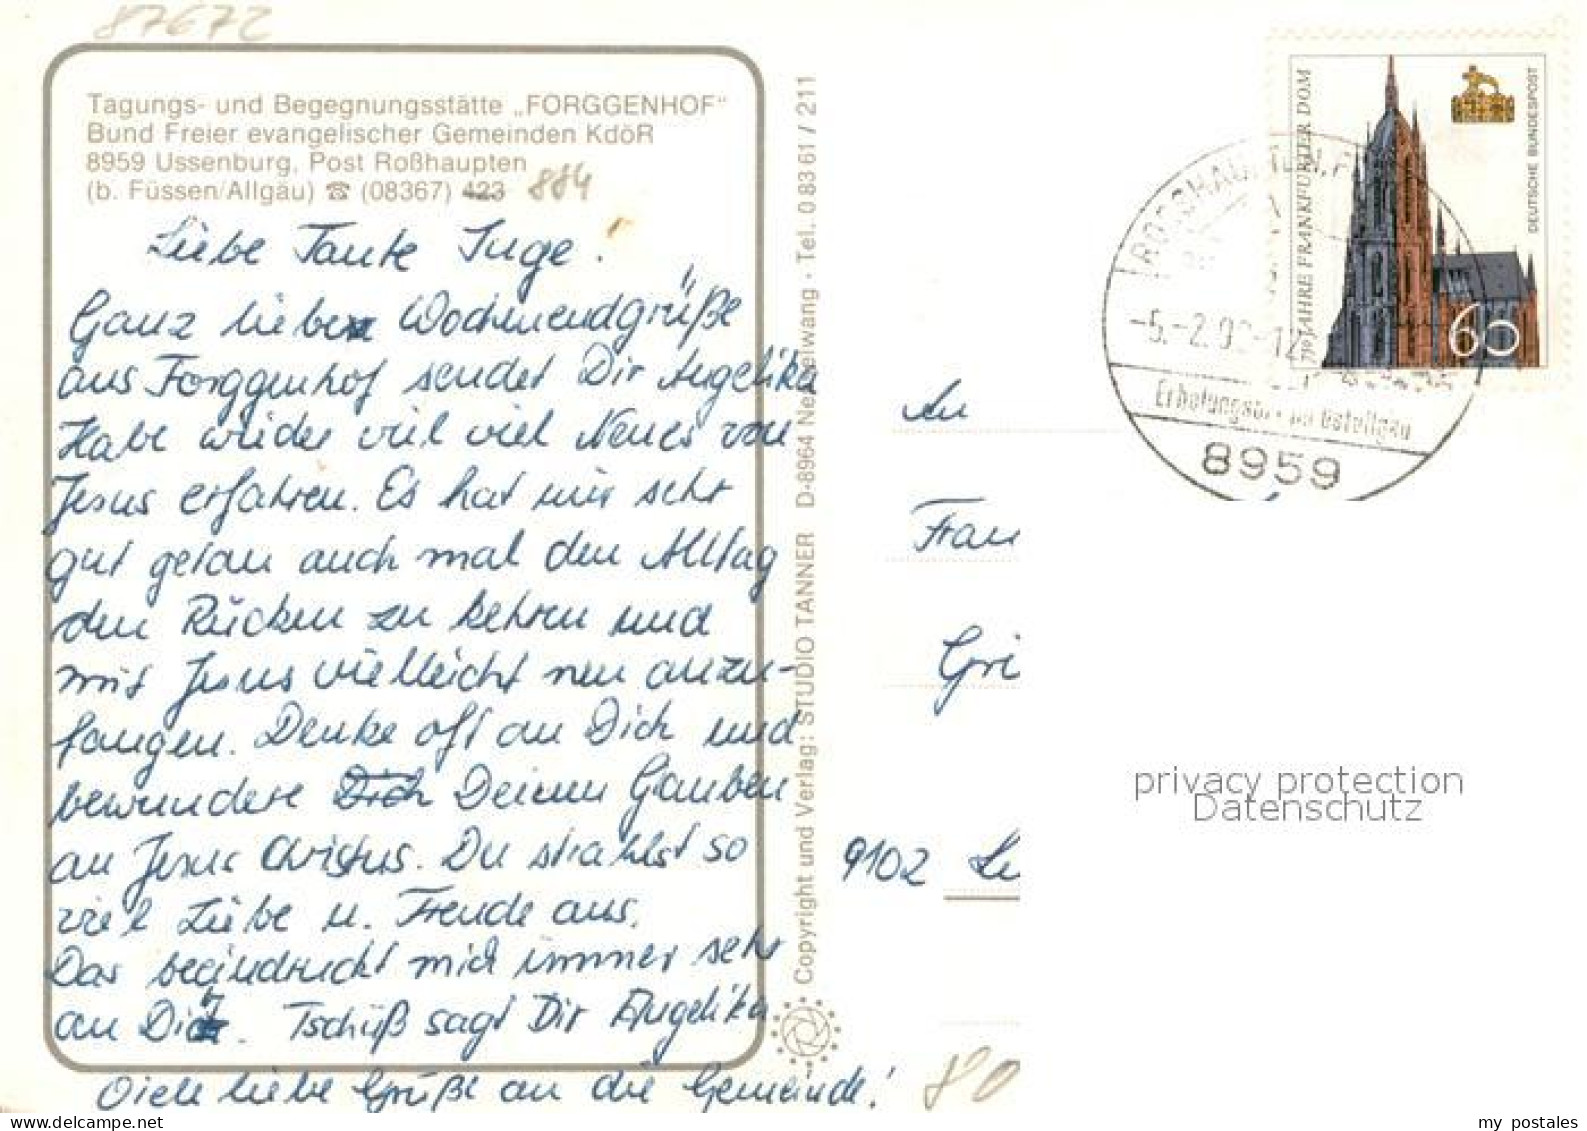 87672
Tagungs- und Begegnungsstätte „FORGGENHOF"
Bund Freier evangelischer Gemeinden KdöR
8959 Ussenburg, Post Roßhaupten
(b. Füssen/Allgäu) ☎ (08367) 423 884
Liebe Tante Inge!
Ganz liebe Wochenendgrüße
aus Forggenhof sendet Dir Angelika
Habe wieder viel viel Neues von
Jesus erfahren. Es hat mir sehr
gut getan auch mal den Alltag
den Rücken zu kehren und
mit Jesus vielleicht neu anzu-
fangen. Denke oft an Dich und
bewundere Dich Deinen Gauben
an Jesus Christus. Du strahlst so
viel Liebe u. Freude aus.
Das beeindruckt mich immer sehr
an Dir. Tschüß sagt Dir Angelika
Viele liebe Grüße an die Gemeinde!
Copyright und Verlag: STUDIO TANNER D-8964 Nesselwang - Tel. 0 83 61 / 211
750 JAHRE FRANKFURTER DOM
DEUTSCHE BUNDESPOST
60
-5.-2.90-12
8959
An
Frau
Gri
9102 Li
80
privacy protection
Datenschutz
my postales